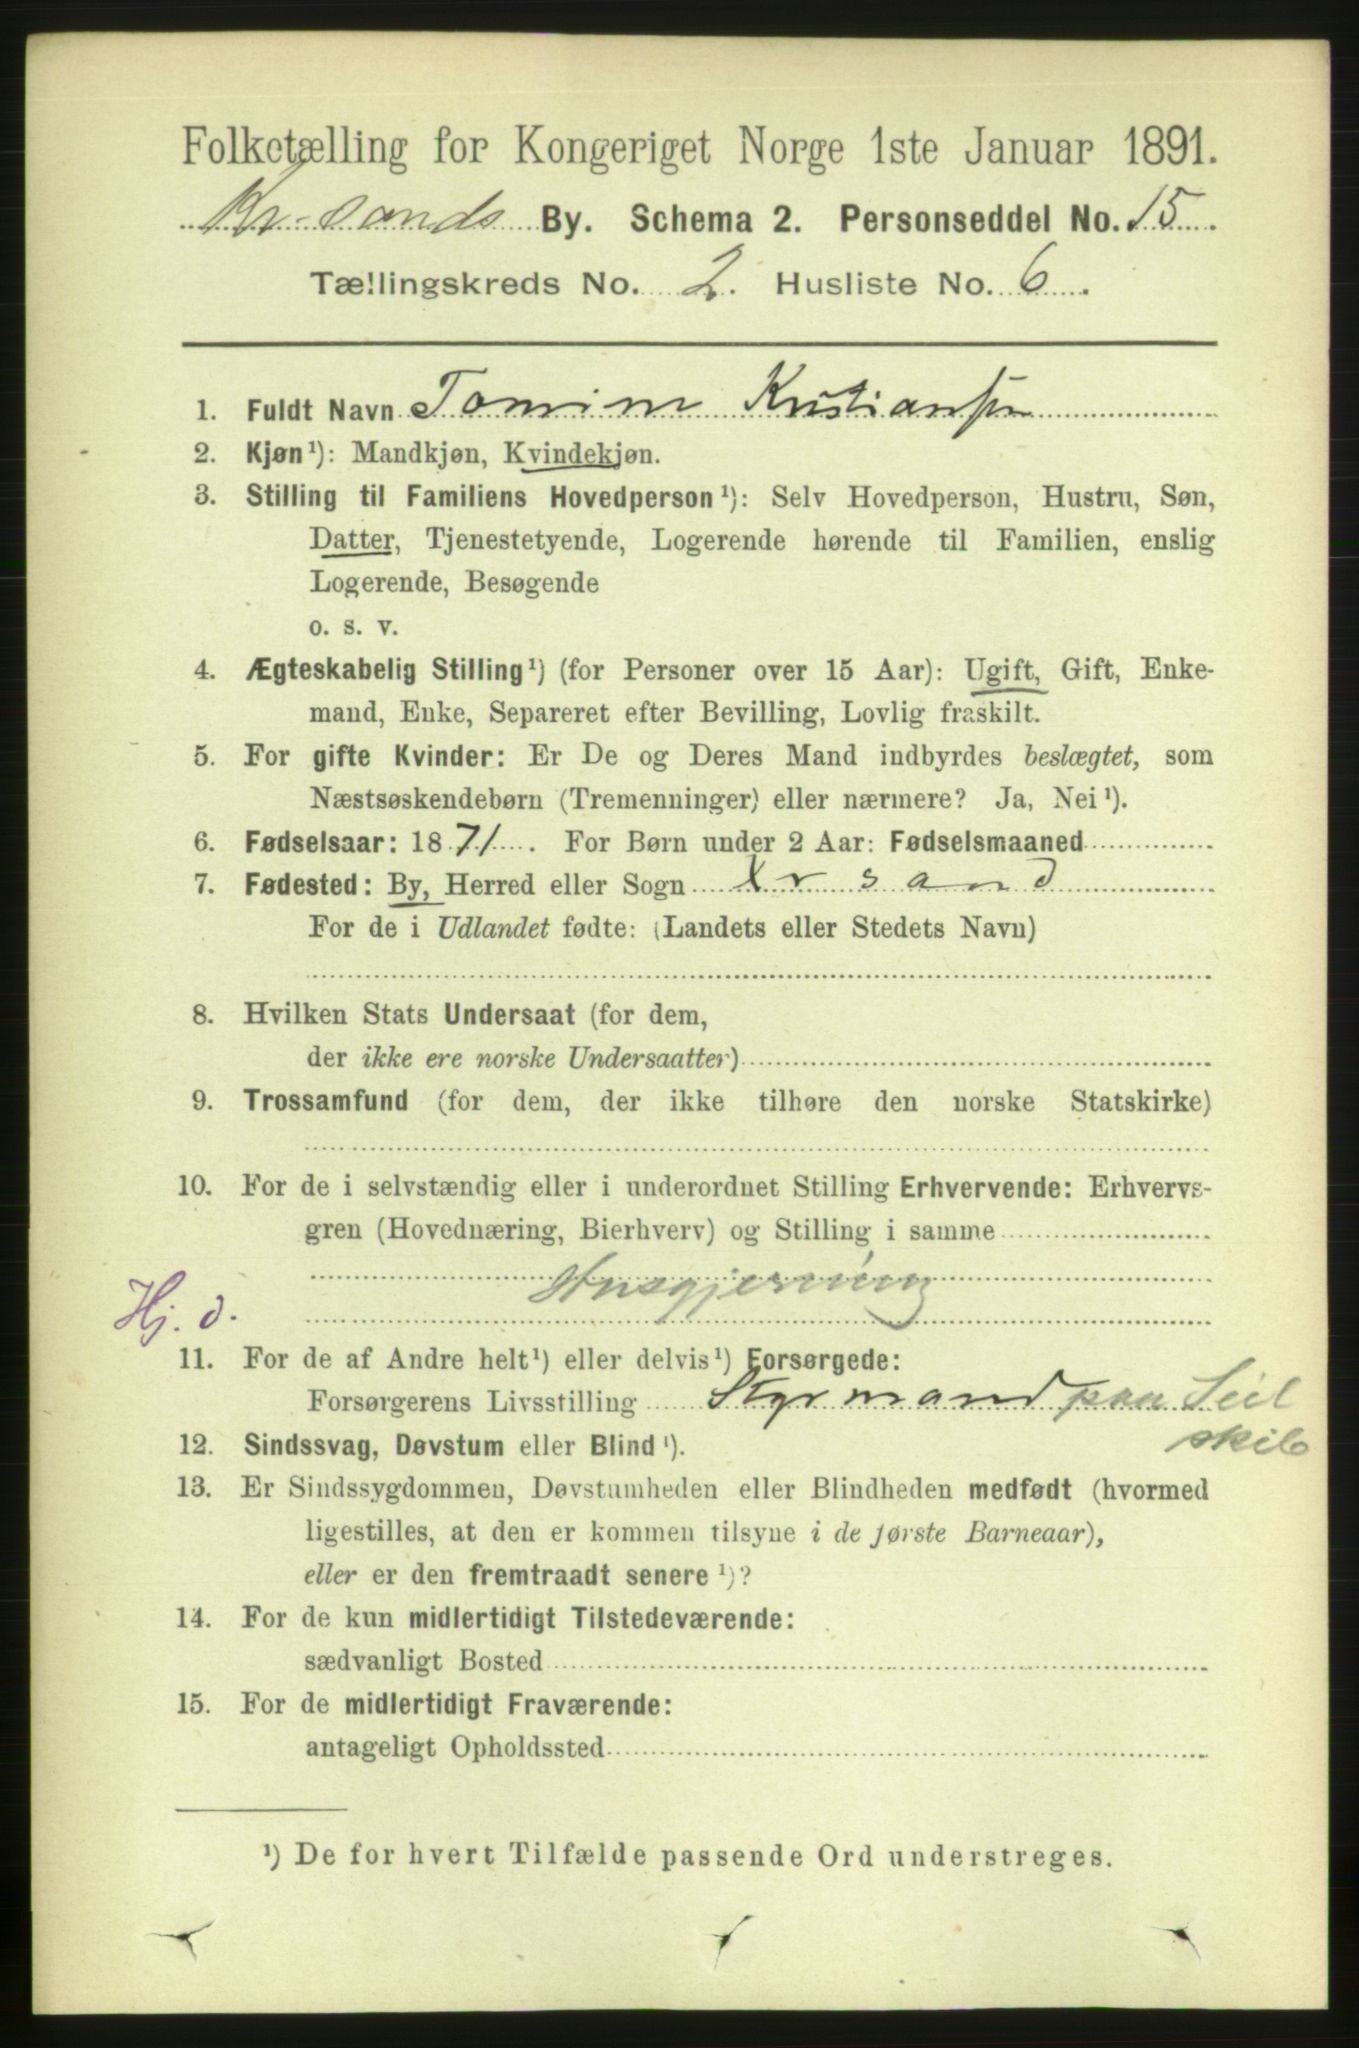 Folketælling for Kongeriget Norge 1ste Januar 1891.
Kr-sands By. Schema 2. Personseddel No. 15.
Tællingskreds No. 2. Husliste No. 6.
1. Fuldt Navn Tomine Kristiansen
2. Kjøn¹): Mandkjøn, Kvindekjøn.
3. Stilling til Familiens Hovedperson¹): Selv Hovedperson, Hustru, Søn,
Datter, Tjenestetyende, Logerende hørende til Familien, enslig
Logerende, Besøgende
o. s. v.
4. Ægteskabelig Stilling¹) (for Personer over 15 Aar): Ugift, Gift, Enke-
mand, Enke, Separeret efter Bevilling, Lovlig fraskilt.
5. For gifte Kvinder: Er De og Deres Mand indbyrdes beslægtet, som
Næstsøskendebørn (Tremenninger) eller nærmere? Ja, Nei¹).
6. Fødselsaar: 1871. For Børn under 2 Aar: Fødselsmaaned
7. Fødested: By, Herred eller Sogn Krsand
For de i Udlandet fødte: (Landets eller Stedets Navn)
8. Hvilken Stats Undersaat (for dem,
der ikke ere norske Undersaatter)
9. Trossamfund (for dem, der ikke tilhøre den norske Statskirke)
10. For de i selvstændig eller i underordnet Stilling Erhvervende: Erhvervs-
gren (Hovednæring, Bierhverv) og Stilling i samme
Husgjerning
Hj. d.
11. For de af Andre helt¹) eller delvis¹) Forsørgede:
Forsørgerens Livsstilling Styrmand paa Seil
skib
12. Sindssvag, Døvstum eller Blind¹).
13. Er Sindssygdommen, Døvstumheden eller Blindheden medfødt (hvormed
ligestilles, at den er kommen tilsyne i de første Barneaar),
eller er den fremtraadt senere¹)?
14. For de kun midlertidigt Tilstedeværende:
sædvanligt Bosted
15. For de midlertidigt Fraværende:
antageligt Opholdssted
¹) De for hvert Tilfælde passende Ord understreges.